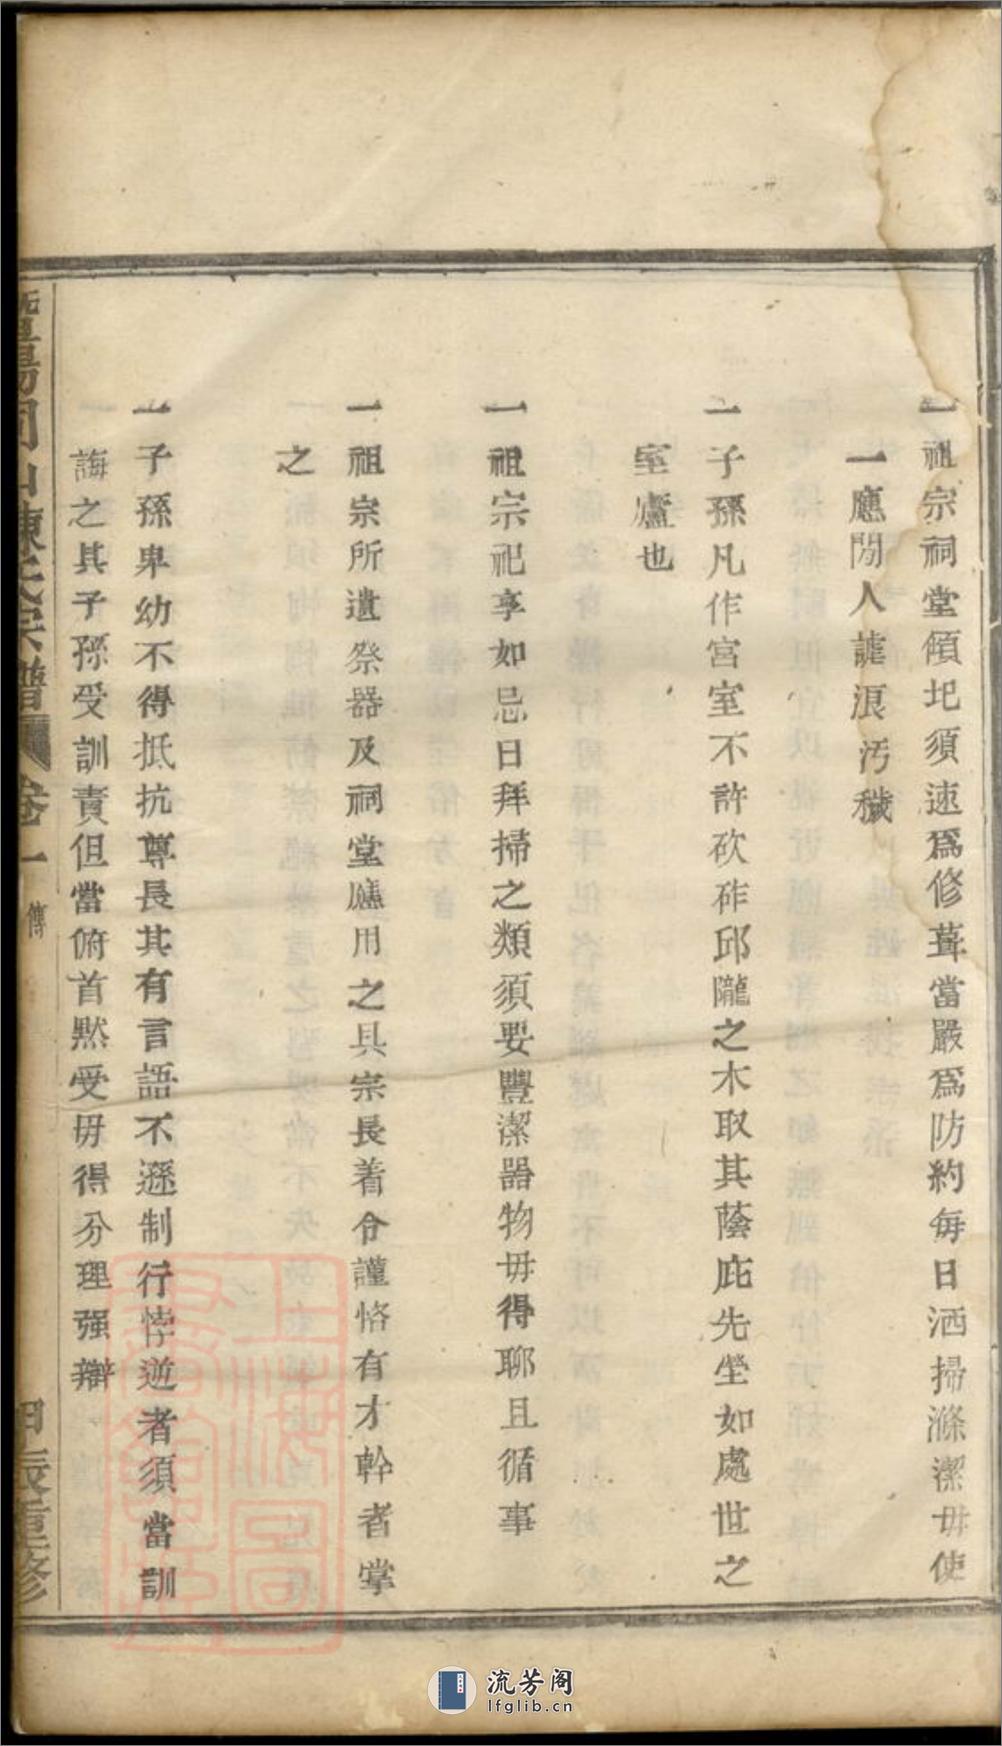 一祖宗祠堂傾圮須速爲修葺當嚴爲防約每日洒掃滌潔毋使
一應閒人謔浪汚穢
一子孫凡作宮室不許砍砟邱隴之木取其蔭庇先塋如處世之
室廬也
一祖宗祀享如忌日拜掃之類須要豐潔器物毋得聊且循事
一祖宗所遺祭器及祠堂應用之具宗長着令謹恪有才幹者掌
之
一子孫卑幼不得抵抗尊長其有言語不遜制行悖逆者須當訓
誨之其子孫受訓責但當俯首默受毋得分理强辯
暨陽同山陳氏宗譜 卷一 傳 辰重修
上海圖書館藏
流芳阁
lfglib.cn